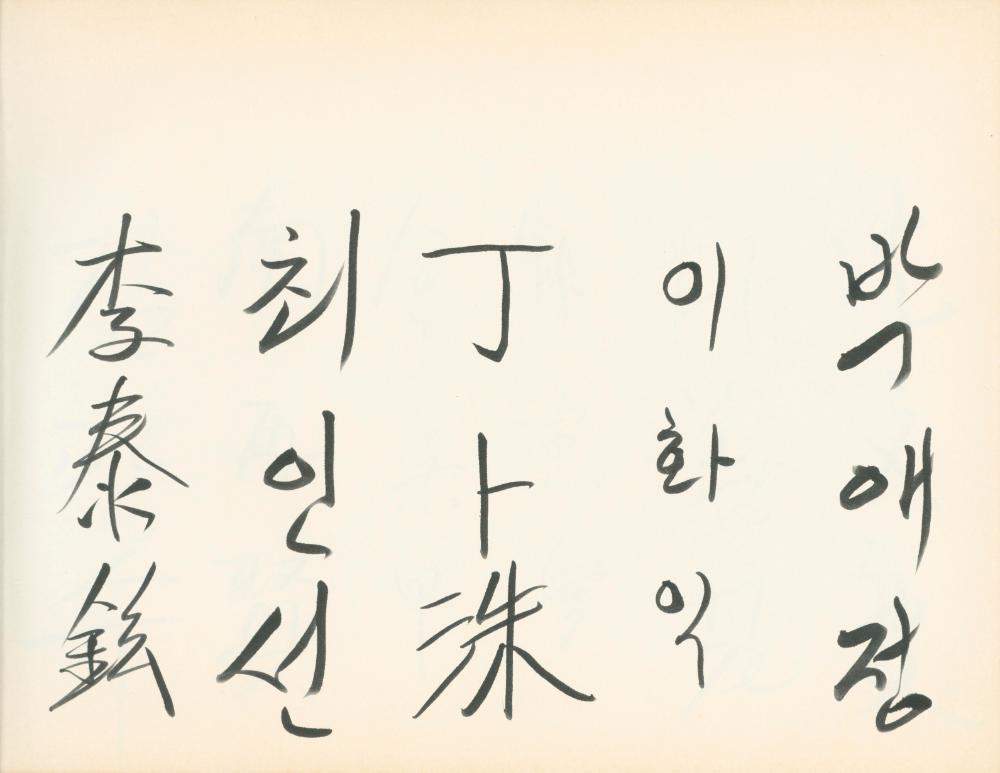 박애정
이화익
丁卜洙
최인선
李泰鉉